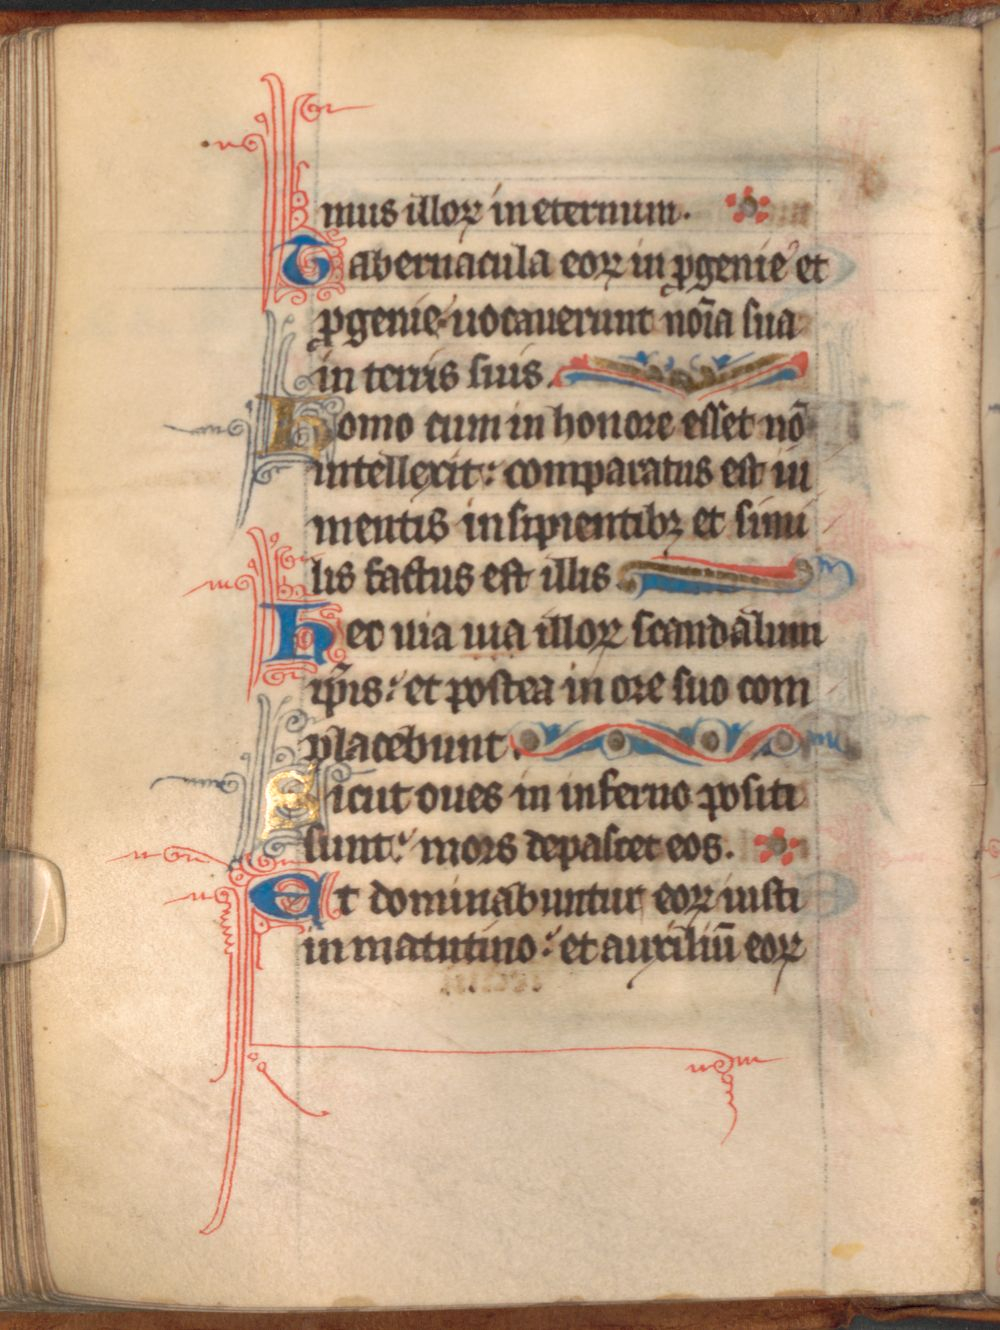 mus illoꝝ in eternum.
Tabernacula eoꝝ in ꝓgenie et
ꝓgenie: uocauerunt nōīa sua
in terris suis.
Homo cum in honore esset nō
intellexit: comparatus est iu
mentis insipientibꝫ et simi
lis factus est illis
Hec uia uia illoꝝ scandalum
ip̄is: et postea in ore suo com
placebunt.
Sicut oues in inferno positi
sunt: mors depascet eos.
Et dominabuntur eoꝝ iusti
in matutino: et auxiliū eoꝝ